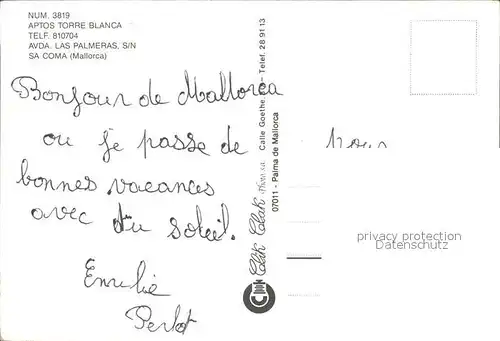 NUM. 3819
APTOS TORRE BLANCA
TELF. 810704
AVDA. LAS PALMERAS, S/N
SA COMA (Mallorca)
Bonjour de Mallorca
ou je passe de
bonnes vacances
avec du soleil.
Emilie
Clik Clak Photo, s.a. Calle Goethe, — Telef. 28 91 13
07011 - Palma de Mallorca
privacy protection
Datenschutz